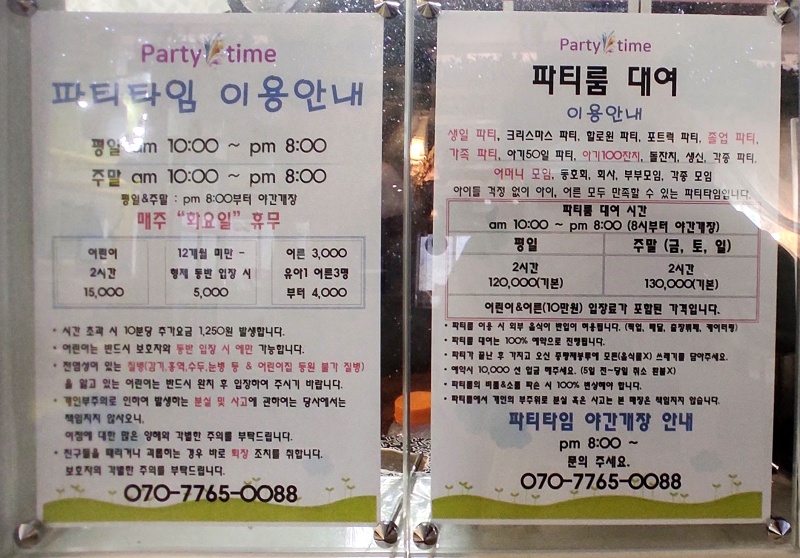 Party time
파티타임 이용안내
평일 am 10:00 ~ pm 8:00
주말 am 10:00 ~ pm 8:00
평일&주말 : pm 8:00부터 야간개장
매주 "화요일" 휴무
어린이
2시간
15,000
12개월 미만 -
형제 동반 입장 시
5,000
어른 3,000
유아1 어른3명
부터 4,000
• 시간 초과 시 10분당 추가요금 1,250원 발생합니다.
• 어린이는 반드시 보호자와 동반 입장 시 에만 가능합니다.
• 전염성이 있는 질병(감기,홍역,수두,눈병 등 & 어린이집 등원 불가 질병)
을 앓고 있는 어린이는 반드시 완치 후 입장하여 주시기 바랍니다.
• 개인부주의로 인하여 발생하는 분실 및 사고에 관하여는 당사에서는
책임지지 않사오니,
이점에 대한 많은 양해와 각별한 주의를 부탁드립니다.
• 친구들을 때리거나 괴롭히는 경우 바로 퇴장 조치를 취합니다.
보호자의 각별한 주의를 부탁드립니다.
070-7765-0088
Party time
파티룸 대여
이용안내
생일 파티, 크리스마스 파티, 할로윈 파티, 포트럭 파티, 졸업 파티,
가족 파티, 아기50일 파티, 아기100잔치, 돌잔치, 생신, 각종 파티,
어머니 모임, 동호회, 회사, 부부모임, 각종 모임
아이들 걱정 없이 아이, 어른 모두 만족할 수 있는 파티타임입니다.
파티룸 대여 시간
am 10:00 ~ pm 8:00 (8시부터 야간개장)
평일
주말 (금, 토, 일)
2시간
120,000(기본)
2시간
130,000(기본)
어린이&어른(10만원) 입장료가 포함된 가격입니다.
• 파티룸 이용 시 외부 음식이 반입이 허용됩니다. (픽업, 배달, 출장뷔페, 케이터링)
• 파티룸 대여는 100% 예약으로 진행됩니다.
• 파티가 끝난 후 가지고 오신 종량제봉투에 모든(음식물X) 쓰레기를 담아주세요.
• 예약시 10,000 선 입금 해주세요. (5일 전~당일 취소 환불X)
• 파티룸의 비품&소품 파손 시 100% 변상해야 합니다.
• 파티룸에서 개인의 부주위로 분실 혹은 사고는 본 매장은 책임지지 않습니다.
파티타임 야간개장 안내
pm 8:00 ~
문의 주세요.
070-7765-0088